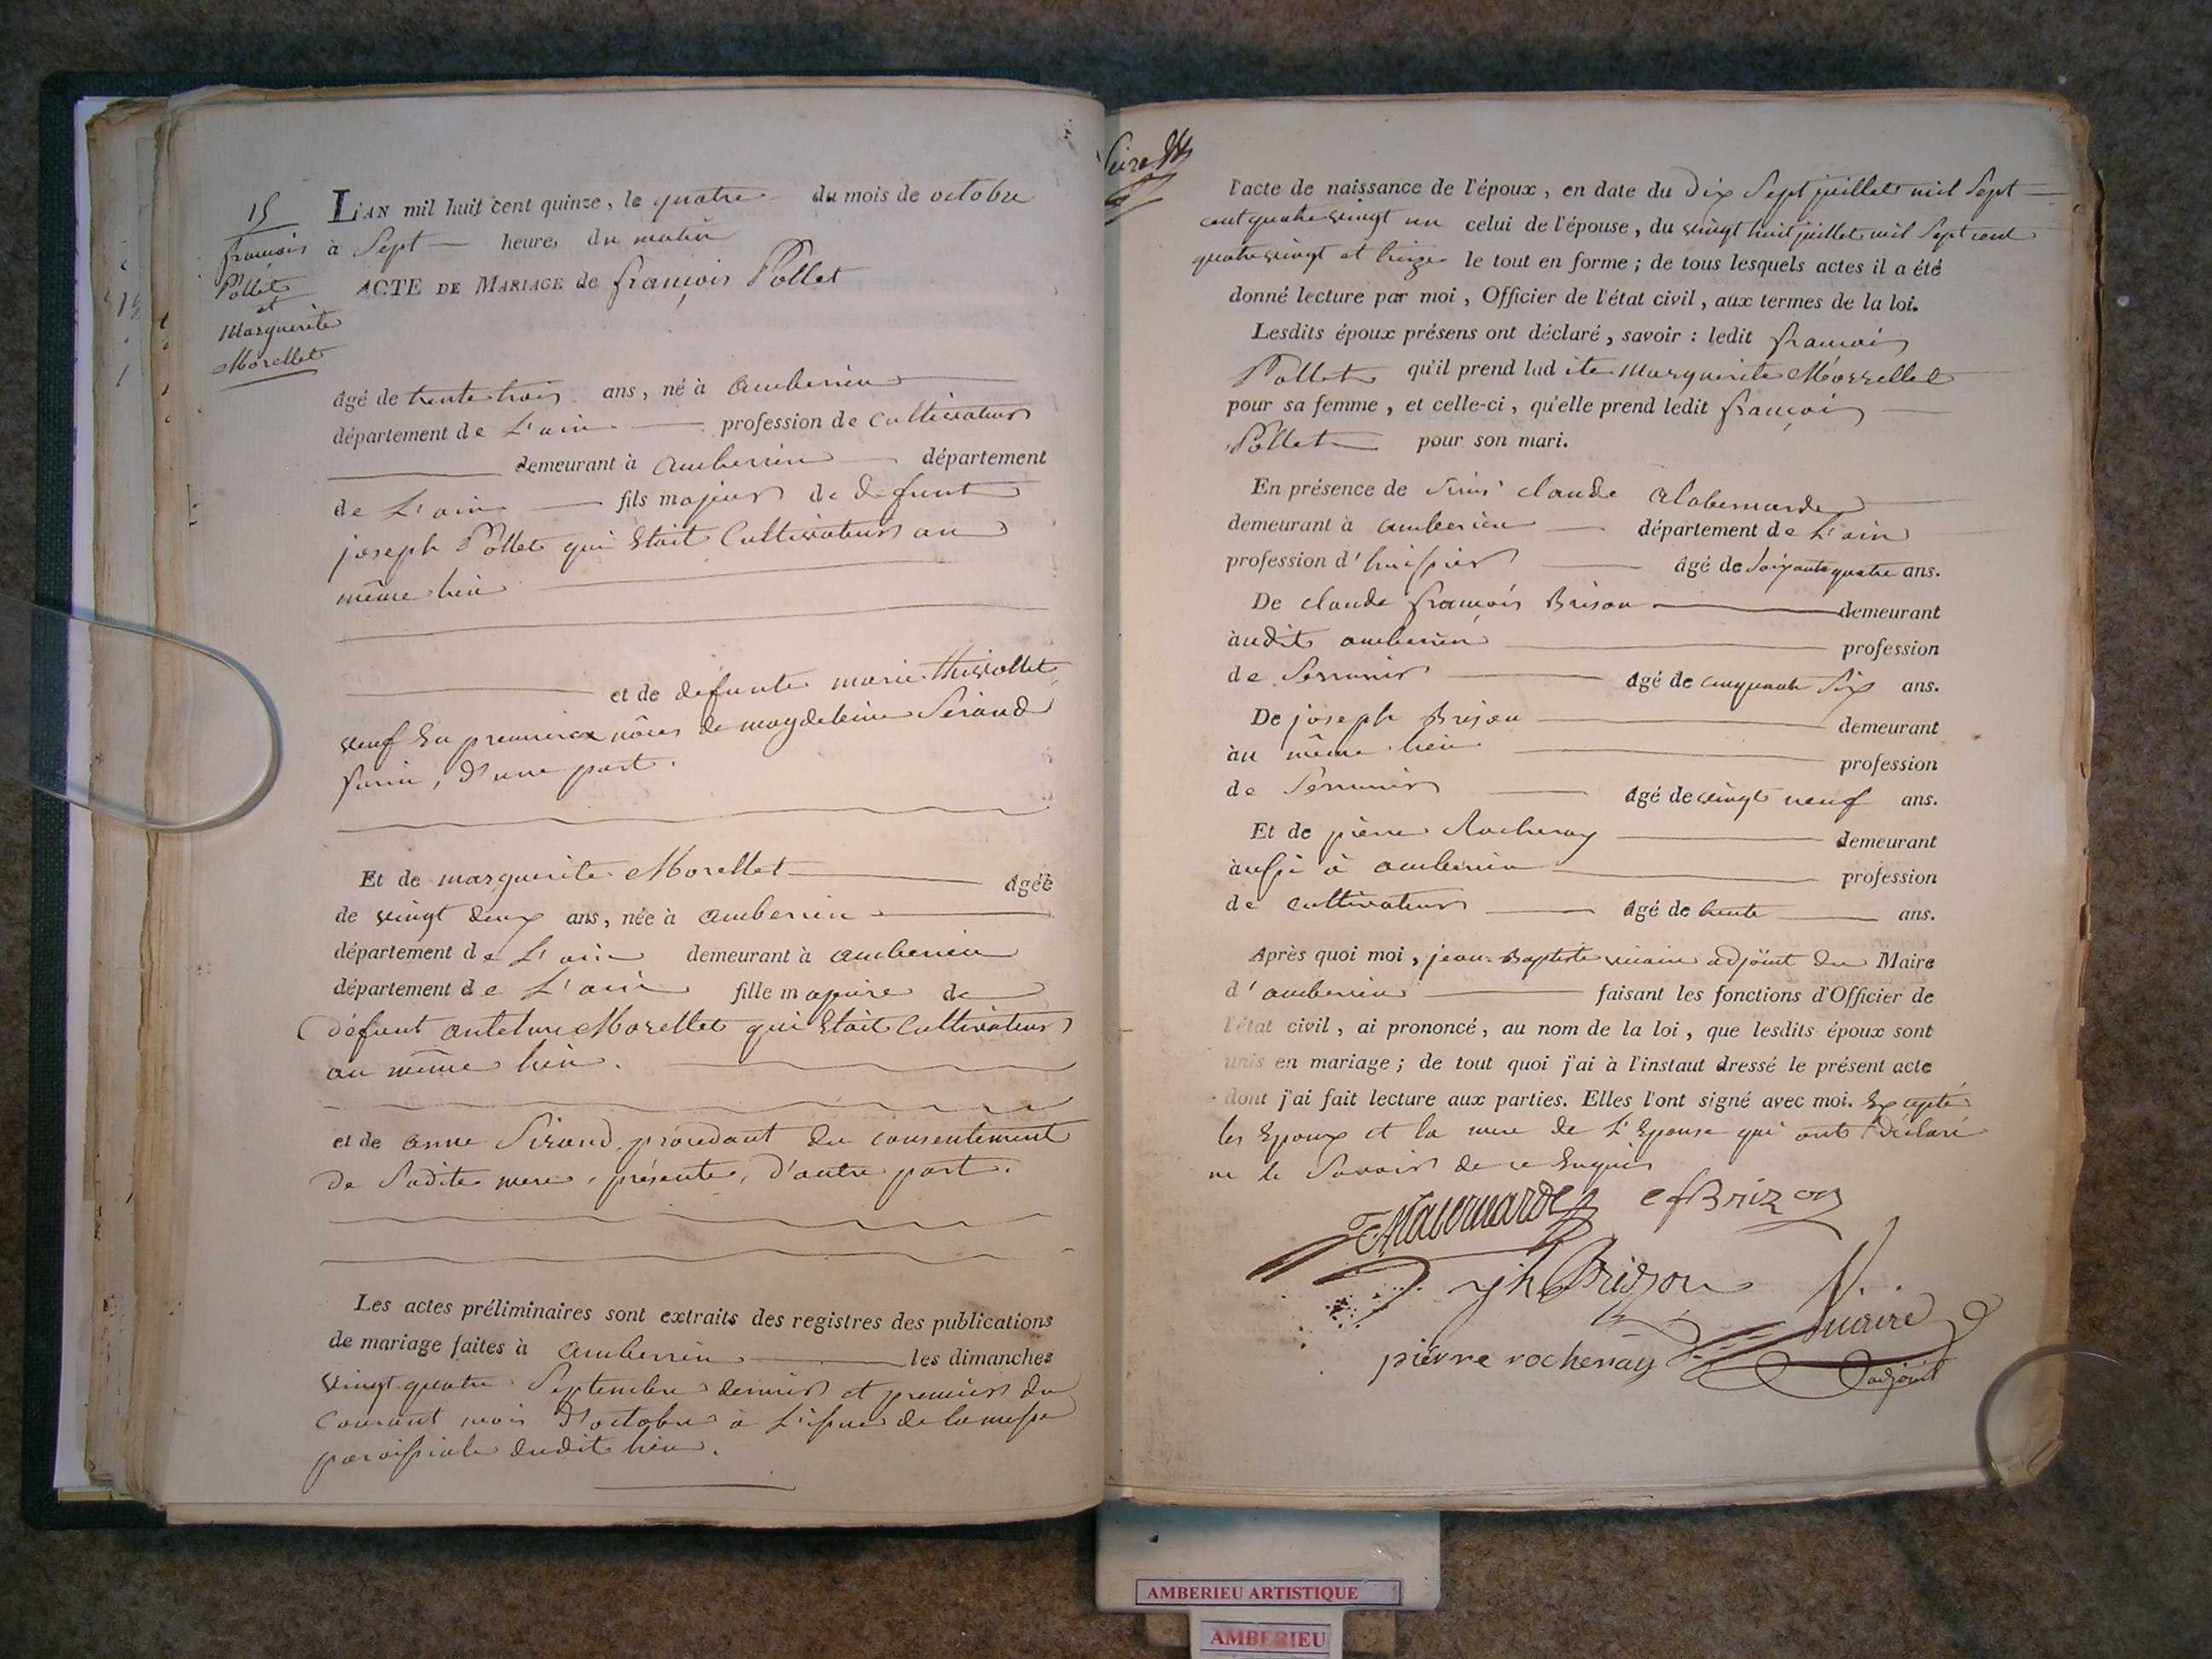 15
françois
Pollet
et
Marguerite
Morellet
L'AN mil huit cent quinze, le quatre du mois de octobre
à Sept heures du matin
ACTE DE MARIAGE de françois Pollet
âgé de trente trois ans, né à amberieu
département de L'ain profession de cultivateur
demeurant à amberieu département
de L'ain fils majeur de defunt
joseph Pollet qui Etait Cultivateur au
même lieu
et de défunte marie thivollet
veuf En premieres nôces de magdeleine Sirand
d'une part.
Et de marguerite Morellet âgée
de vingt deux ans, née à amberieu
département de L'ain demeurant à amberieu
département de L'ain fille majeure de
défunt antelme Morellet qui Etait Cultivateur
au même lieu.
et de anne Sirand, procedant du consentement
de Sadite mere, présente, d'autre part.
Les actes préliminaires sont extraits des registres des publications
de mariage faites à amberieu les dimanches
vingt quatre Septembre dernier et premier du
Courant mois d'octobre à L'issue de la messe
paroissiale dudit lieu.
l'acte de naissance de l'époux, en date du dix Sept juillet mil Sept
cent quatre vingt un celui de l'épouse, du vingt huit juillet mil Sept cent
quatre vingt et treize le tout en forme ; de tous lesquels actes il a été
donné lecture par moi, Officier de l'état civil, aux termes de la loi.
Lesdits époux présens ont déclaré, savoir : ledit françois
Pollet qu'il prend ladite Marguerite Morrellet
pour sa femme, et celle-ci, qu'elle prend ledit françois
Pollet pour son mari.
En présence de claude alabernarde
demeurant à amberieu département de L'ain
profession d'huissier âgé de Soixante quatre ans.
De claude françois Brison demeurant
audit amberieu profession
de Serrurier âgé de cinquante Six ans.
De joseph Brison demeurant
au même lieu profession
de Serrurier âgé de vingt neuf ans.
Et de pierre Rochenay demeurant
aussi à amberieu profession
de cultivateur âgé de trente ans.
Après quoi moi, jean-Baptiste vicaire adjoint du Maire
d'amberieu faisant les fonctions d'Officier de
l'état civil, ai prononcé, au nom de la loi, que lesdits époux sont
unis en mariage ; de tout quoi j'ai à l'instant dressé le présent acte
dont j'ai fait lecture aux parties. Elles l'ont signé avec moi. Excepté
les Epoux et la mere de L'Epouse qui ont déclaré
ne le Savoir de ce Enquis
cfBrizon
jh Brizon
Vicaire
pierre rochenay
adjoint
AMBERIEU ARTISTIQUE
AMBERIEU